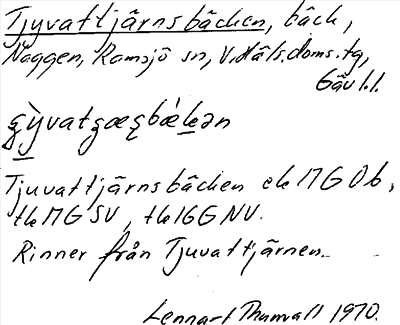 Tjyvattjärnsbäcken, bäck,
Naggen, Ramsjö sn, V. Häls. doms. tg,
Gäv l.l.
Tjuvattjärnsbäcken ek 17G 0b,
tk 17G SV, tk 16G NV.
Rinner från Tjuvattjärnen.
Lennart Thunvall 1970.